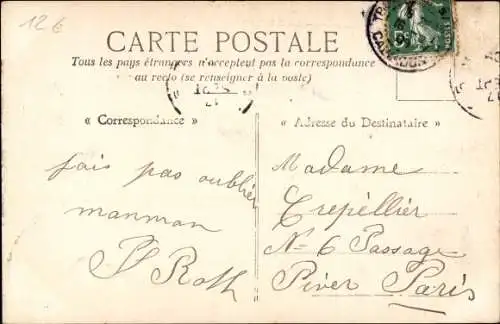 12€
CARTE POSTALE
Tous les pays étrangers n'acceptent pas la correspondance
au recto (se renseigner à la poste)
« Correspondance »
« Adresse du Destinataire »
fais pas oublier
manman
P Roth
Madame
Crepellier
N- 6 Passage
Piver Paris